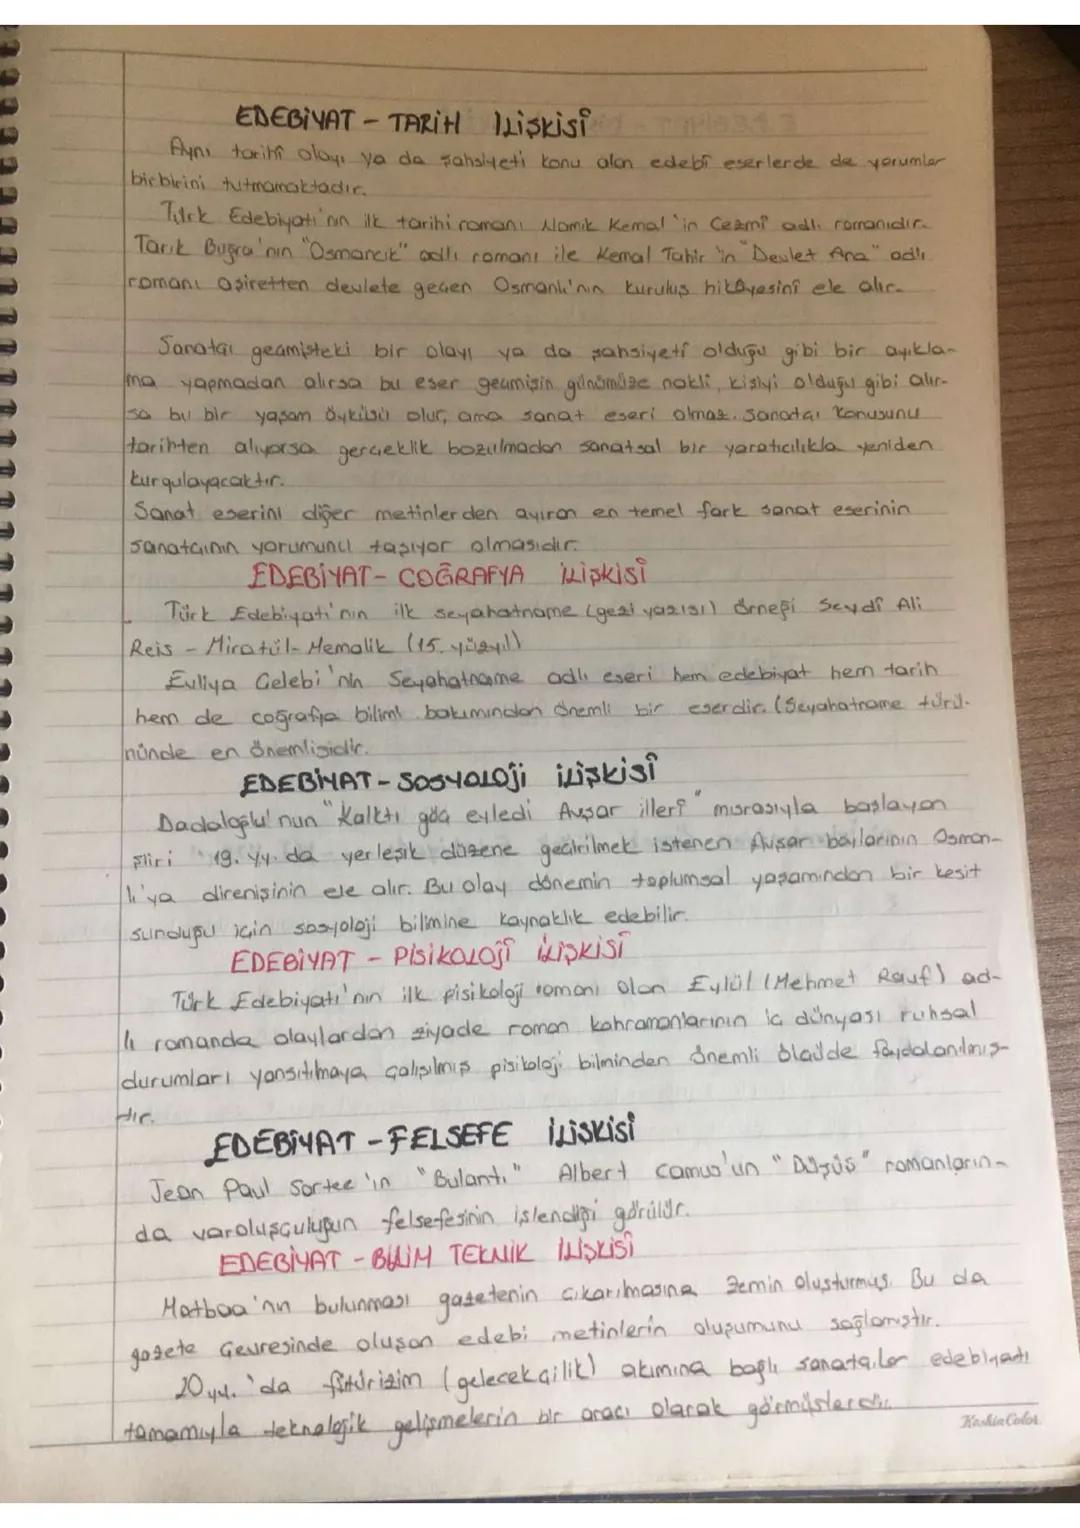 EDEBİYAT - TARİH İLİŞKİSİ
Aynı tarihî olayı ya da şahsiyeti konu alan edebî eserlerde de yorumlar
birbirini tutmamaktadır.
Türk Edebiyatı'nın ilk tarihi romanı Namık Kemal'in Cezmî adlı romanıdır.
Tarık Buğra'nın "Osmancık" adlı romanı ile Kemal Tahir'in "Devlet Ana" adlı
romanı aşiretten devlete geçen Osmanlı'nın kuruluş hikâyesini ele alır.
Sanatçı geçmişteki bir olayı ya da şahsiyeti olduğu gibi bir ayıkla-
ma yapmadan alırsa bu eser geçmişin günümüze nakli, kişiyi olduğu gibi alır-
sa bu bir yaşam öyküsü olur, ama sanat eseri olmaz. Sanatçı konusunu
tarihten alıyorsa gerçeklik bozulmadan sanatsal bir yaratıcılıkla yeniden
kurgulayacaktır.
Sanat eserini diğer metinlerden ayıran en temel fark sanat eserinin
sanatçının yorumunu taşıyor olmasıdır.
EDEBİYAT - COĞRAFYA İLİŞKİSİ
Türk Edebiyatı'nın ilk seyahatname (gezi yazısı) örneği Seydî Ali
Reis - Miratül-Memalik (15. yüzyıl)
Evliya Çelebi'nin Seyahatname adlı eseri hem edebiyat hem tarih
hem de coğrafya bilimi bakımından önemli bir eserdir. (Seyahatname türü-
nünde en önemlisidir.
EDEBİYAT - SOSYOLOJİ İLİŞKİSİ
Dadaloğlu'nun "Kalktı göç eyledi Avşar illeri" mısrasıyla başlayan
şiiri 19. yy. da yerleşik düzene geçirilmek istenen Avşar boylarının Osman-
lı'ya direnişinin ele alır. Bu olay dönemin toplumsal yaşamından bir kesit
sunduğu için sosyoloji bilimine kaynaklık edebilir.
EDEBİYAT - PİSİKOLOJİ İLİŞKİSİ
Türk Edebiyatı'nın ilk pisikoloji romanı olan Eylül (Mehmet Rauf) ad-
lı romanda olaylardan ziyade roman kahramanlarının iç dünyası ruhsal
durumları yansıtılmaya çalışılmış pisikoloji bilminden önemli ölçüde faydalanılmış-
tır.
EDEBİYAT - FELSEFE İLİŞKİSİ
Jean Paul Sartre'ın "Bulantı" Albert Camus'un "Düşüş" romanların-
da varoluşçuluğun felsefesinin işlendiği görülür.
EDEBİYAT - BİLİM TEKNİK İLİŞKİSİ
Matbaa'nın bulunması gazetenin çıkarılmasına zemin oluşturmuş. Bu da
gazete çevresinde oluşan edebi metinlerin oluşumunu sağlamıştır.
20 yy.'da fütürizim (gelecekçilik) akımına bağlı sanatçılar edebiyatı
tamamıyla teknolojik gelişmelerin bir aracı olarak görmüşlerdir.
KeskinColor